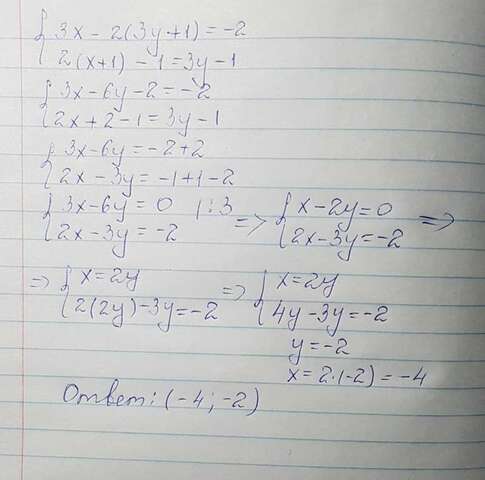 {3x - 2(3y+1) = -2
{2(x+1) - 1 = 3y - 1
{3x - 6y - 2 = -2
{2x + 2 - 1 = 3y - 1
{3x - 6y = -2 + 2
{2x - 3y = -1 + 1 - 2
{3x - 6y = 0 | : 3 => {x - 2y = 0 =>
{2x - 3y = -2 {2x - 3y = -2
=> {x = 2y => {x = 2y
{2(2y) - 3y = -2 {4y - 3y = -2
y = -2
x = 2·(-2) = -4
Ответ: (-4; -2)